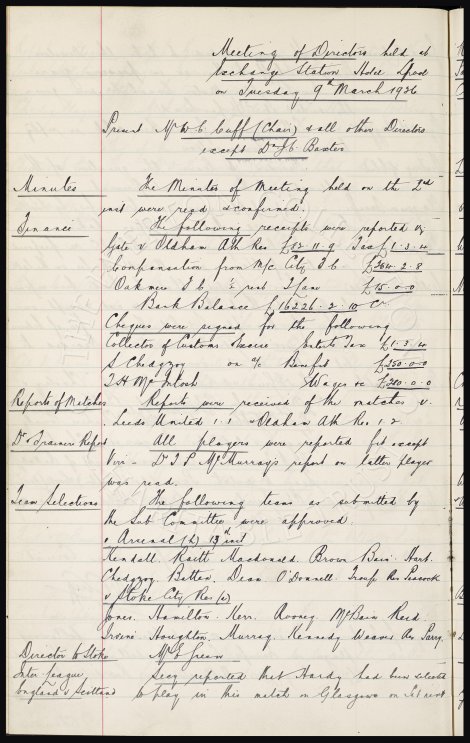 Meeting of Directors held at
Exchange Station Hotel L'pool
on Tuesday 9th March 1926
Present Mr W. C. Cuff (Chair) & all other Directors
except Dr J. C. Baxter
Minutes The Minutes of Meeting held on the 2nd
inst were read & confirmed.
Finance The following receipts were reported viz
Gate v Oldham Ath Res £12.11.9 Tax £1.3.4
Compensation from M/c City F C £264.2.8
Oakmere F. C. rent £15.0.0
Bank Balance £16226.2.10 Cr.
Cheques were signed for the following
Collector of Customs Excise Ents Tax £1.3.4
S Chedgzoy on a/c Benefit £250.0.0
T. H. McIntosh Wages &c £200.0.0
Reports of Matches Reports were received of the matches v.
Leeds United 1.1 & Oldham Ath Res 1.2
Dr & Trainers Report All players were reported fit except
Virr - Dr J P McMurray's report on latter player
was read.
Team Selections The following teams as submitted by
the Sub Committee were approved.
v Arsenal (h) 13th inst
Kendall. Raitt Macdonald. Brown Bain. Hart.
Chedgzoy. Batten. Dean. O'Donnell. Troup Res Peacock
v Stoke City Res (a)
Jones. Hamilton. Kerr. Rooney McBain Reid.
Irvine. Houghton. Murray. Kennedy Weaver Res Parry.
Director to Stoke Mr E Green
Inter League Secy reported that Hardy had been selected
England v Scotland to play in this match on Glasgow on Sat next